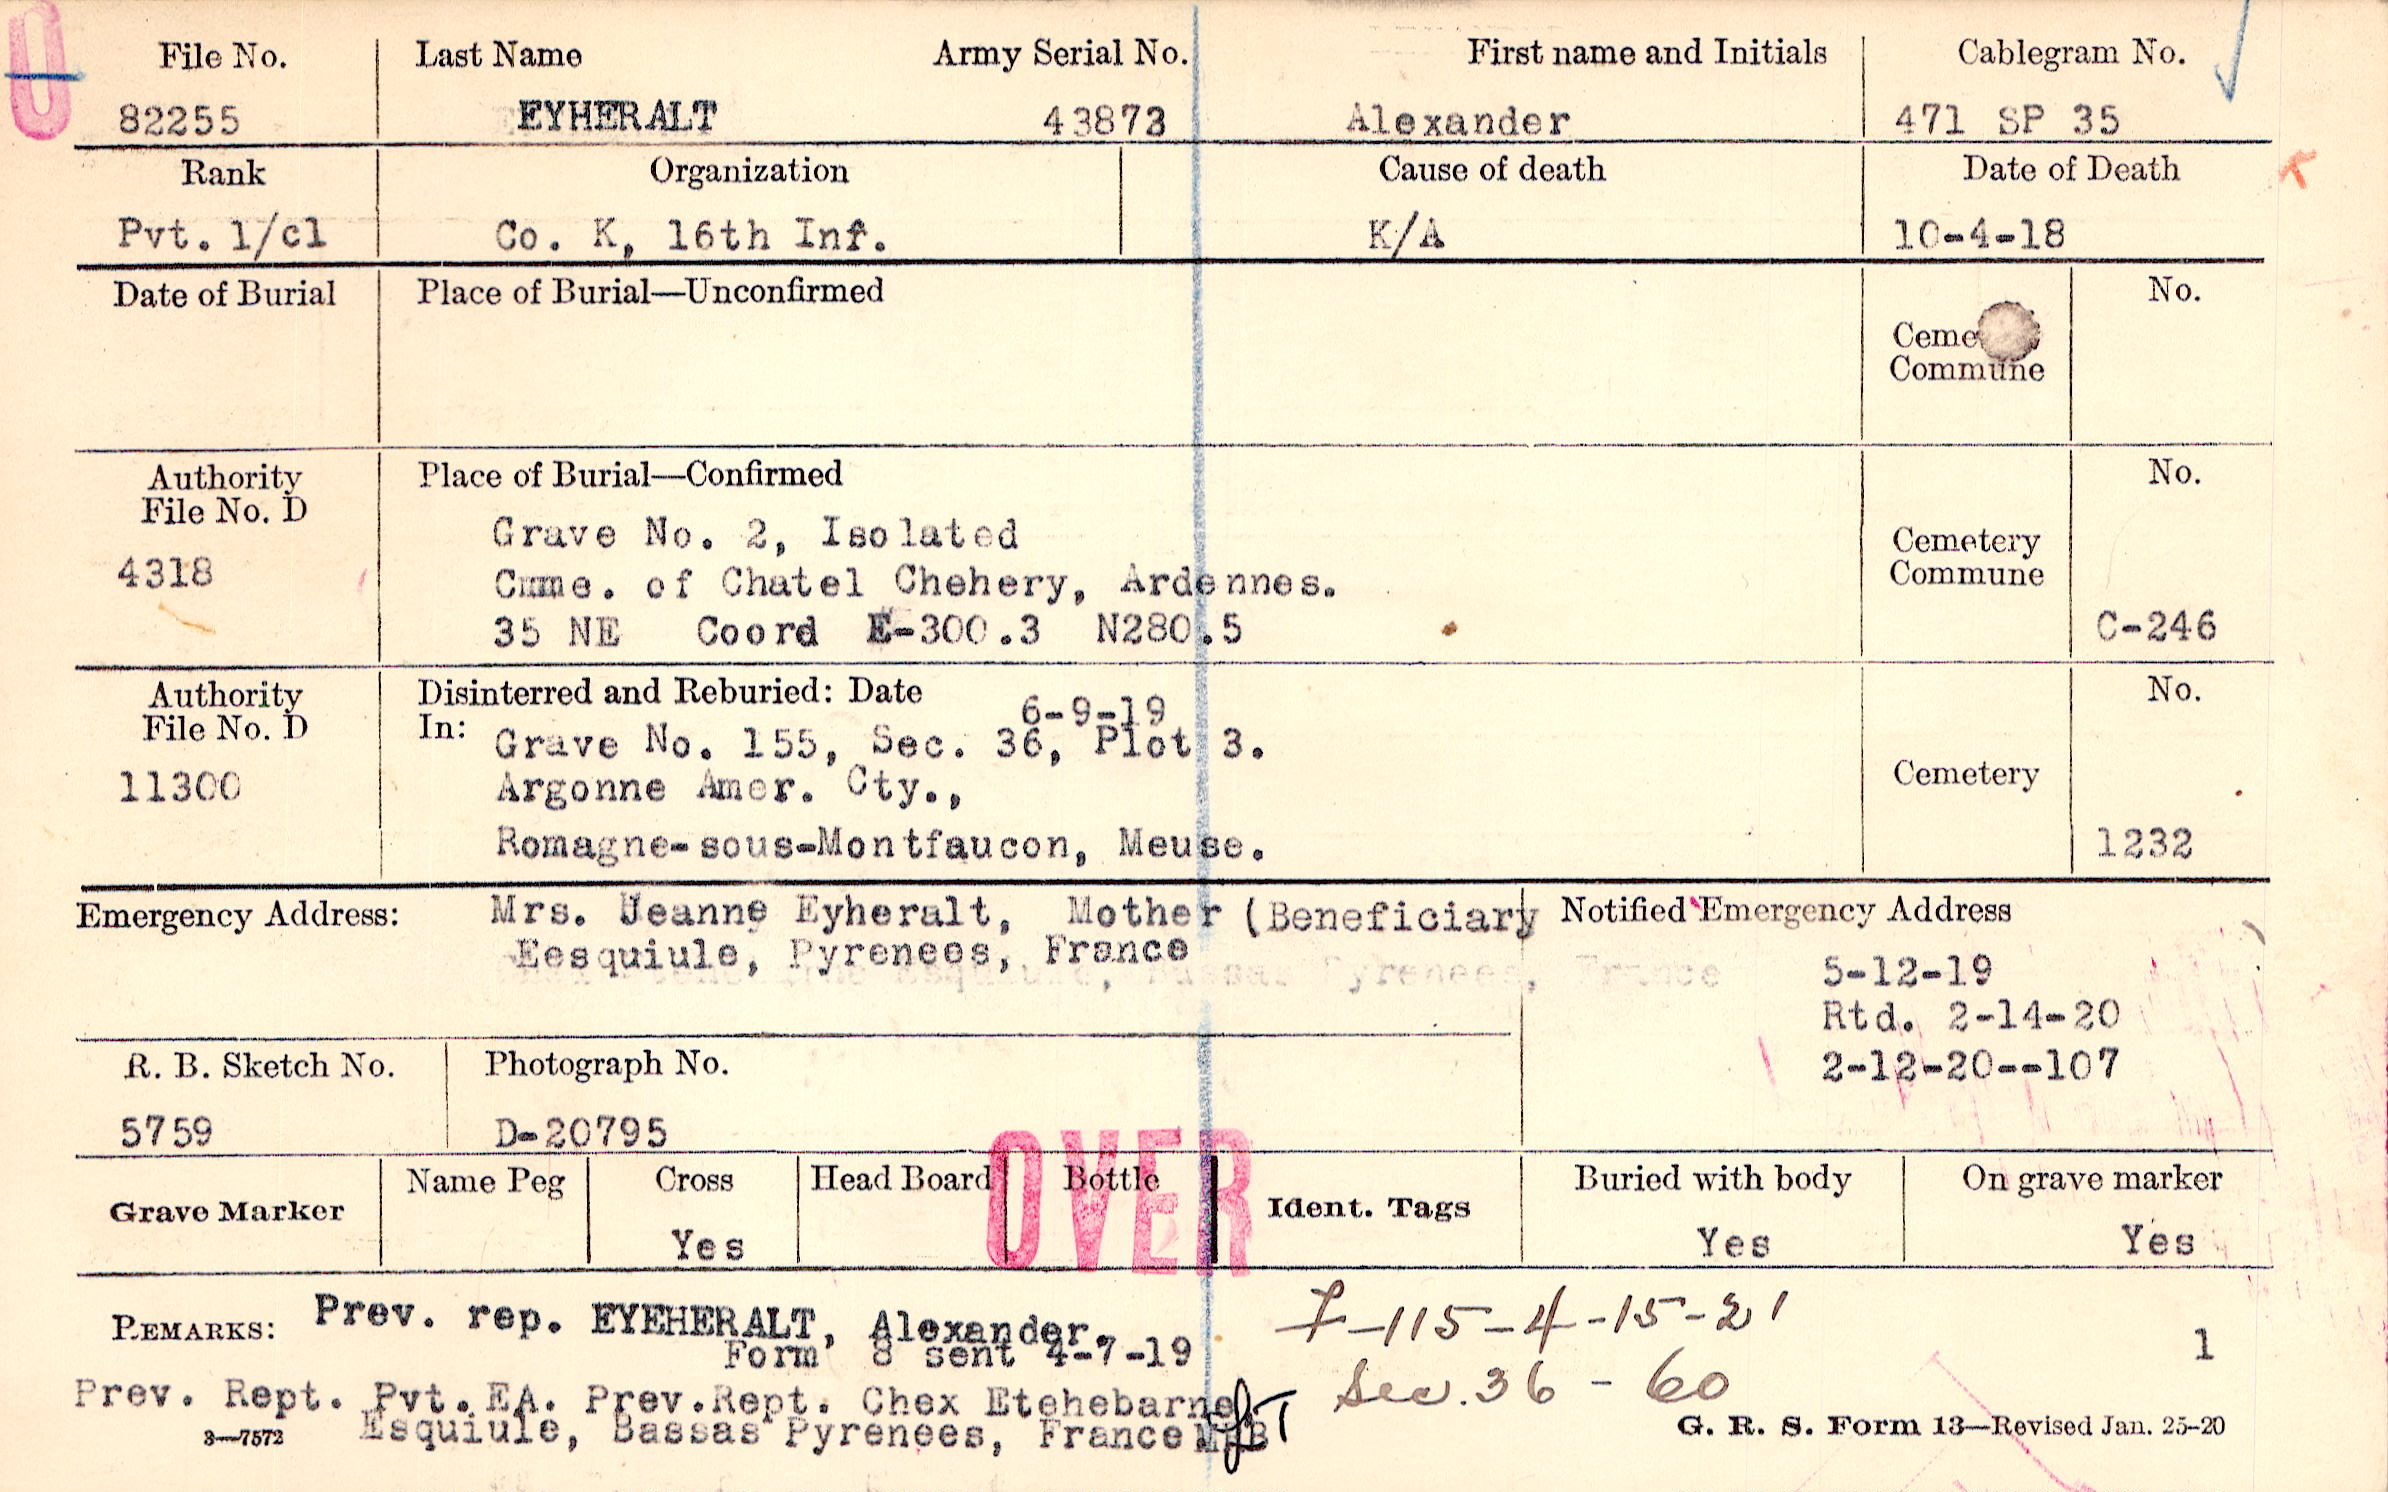 File No. Last Name Army Serial No. First name and Initials Cablegram No.
82255 EYHERALT 43873 Alexander 471 SP 35
Rank Organization Cause of death Date of Death
Pvt. 1/cl Co. K, 16th Inf. K/A 10-4-18
Date of Burial Place of Burial—Unconfirmed No.
Ceme
Commune
Authority Place of Burial—Confirmed No.
File No. D
4318
Grave No. 2, Isolated
Cmme. of Chatel Chehery, Ardennes.
35 NE Coord E-300.3 N280.5
Cemetery
Commune
C-246
Authority Disinterred and Reburied: Date 6-9-19 No.
File No. D In:
11300
Grave No. 155, Sec. 36, Plot 3.
Argonne Amer. Cty.,
Romagne-sous-Montfaucon, Meuse.
Cemetery
1232
Emergency Address: Mrs. Jeanne Eyheralt, Mother (Beneficiary
Eesquiule, Pyrenees, France
Pyrenees, France
Notified Emergency Address
5-12-19
Rtd. 2-14-20
2-12-20--107
R. B. Sketch No. Photograph No.
5759 D-20795
OVER
Grave Marker Name Peg Cross Head Board Bottle Ident. Tags Buried with body On grave marker
Yes Yes Yes
REMARKS: Prev. rep. EYEHERALT, Alexander.
Form 8 sent 4-7-19
Prev. Rept. Pvt. EA. Prev.Rept. Chex Etehebarne
Esquiule, Bassas Pyrenees, France
7-115-4-15-21
Sec. 36 - 60
1
3—7572
G. R. S. Form 13—Revised Jan. 25-20